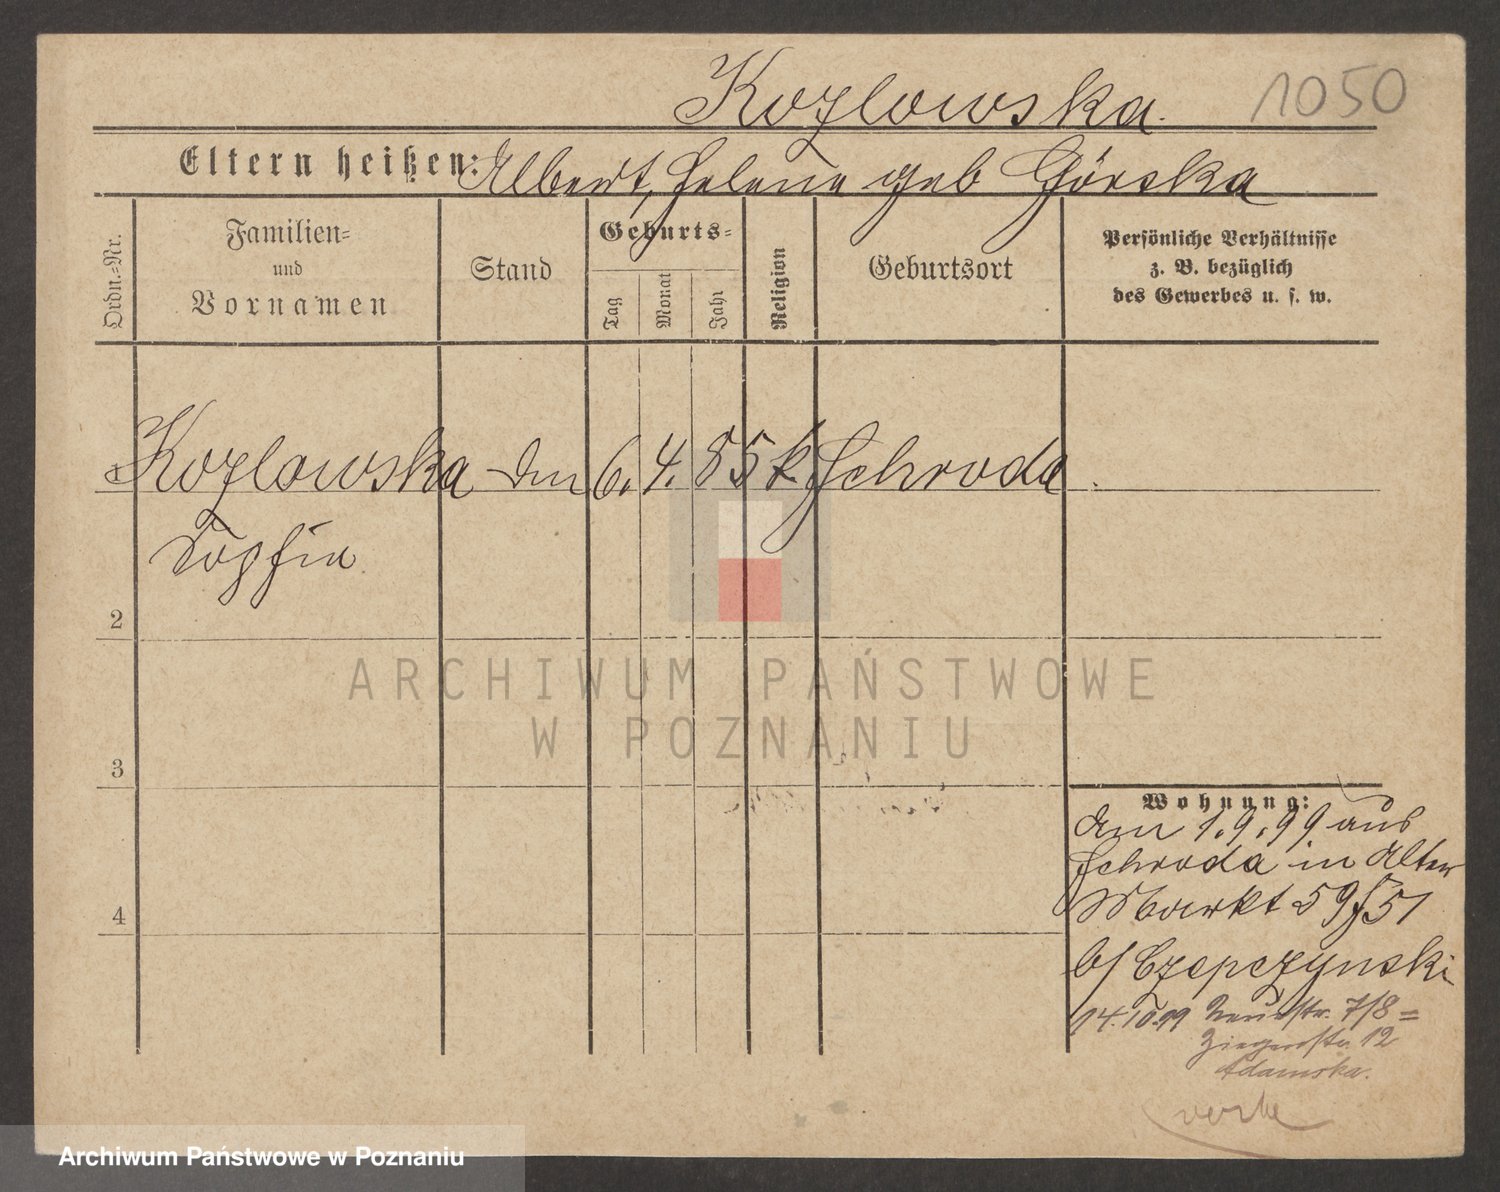 Kozlowska.
1050
Eltern heißen: Albert, Helene geb Górska
Ordn.=Nr.
Familien=
und
Vornamen
Stand
Geburts=
Tag
Monat
Jahr
Religion
Geburtsort
Persönliche Verhältnisse
z. B. bezüglich
des Gewerbes u. s. w.
Kozlowska den 6. 4. 85 k. Schroda
Sophie
2
3
4
Wohnung:
am 1.9.99 aus
Schroda in Alter
Markt 59/51
b/ Czepczynski
14.10.99 Neuestr. 7/8 =
Ziegenstr. 12
Adamska.
ARCHIWUM PAŃSTWOWE
W POZNANIU
Archiwum Państwowe w Poznaniu